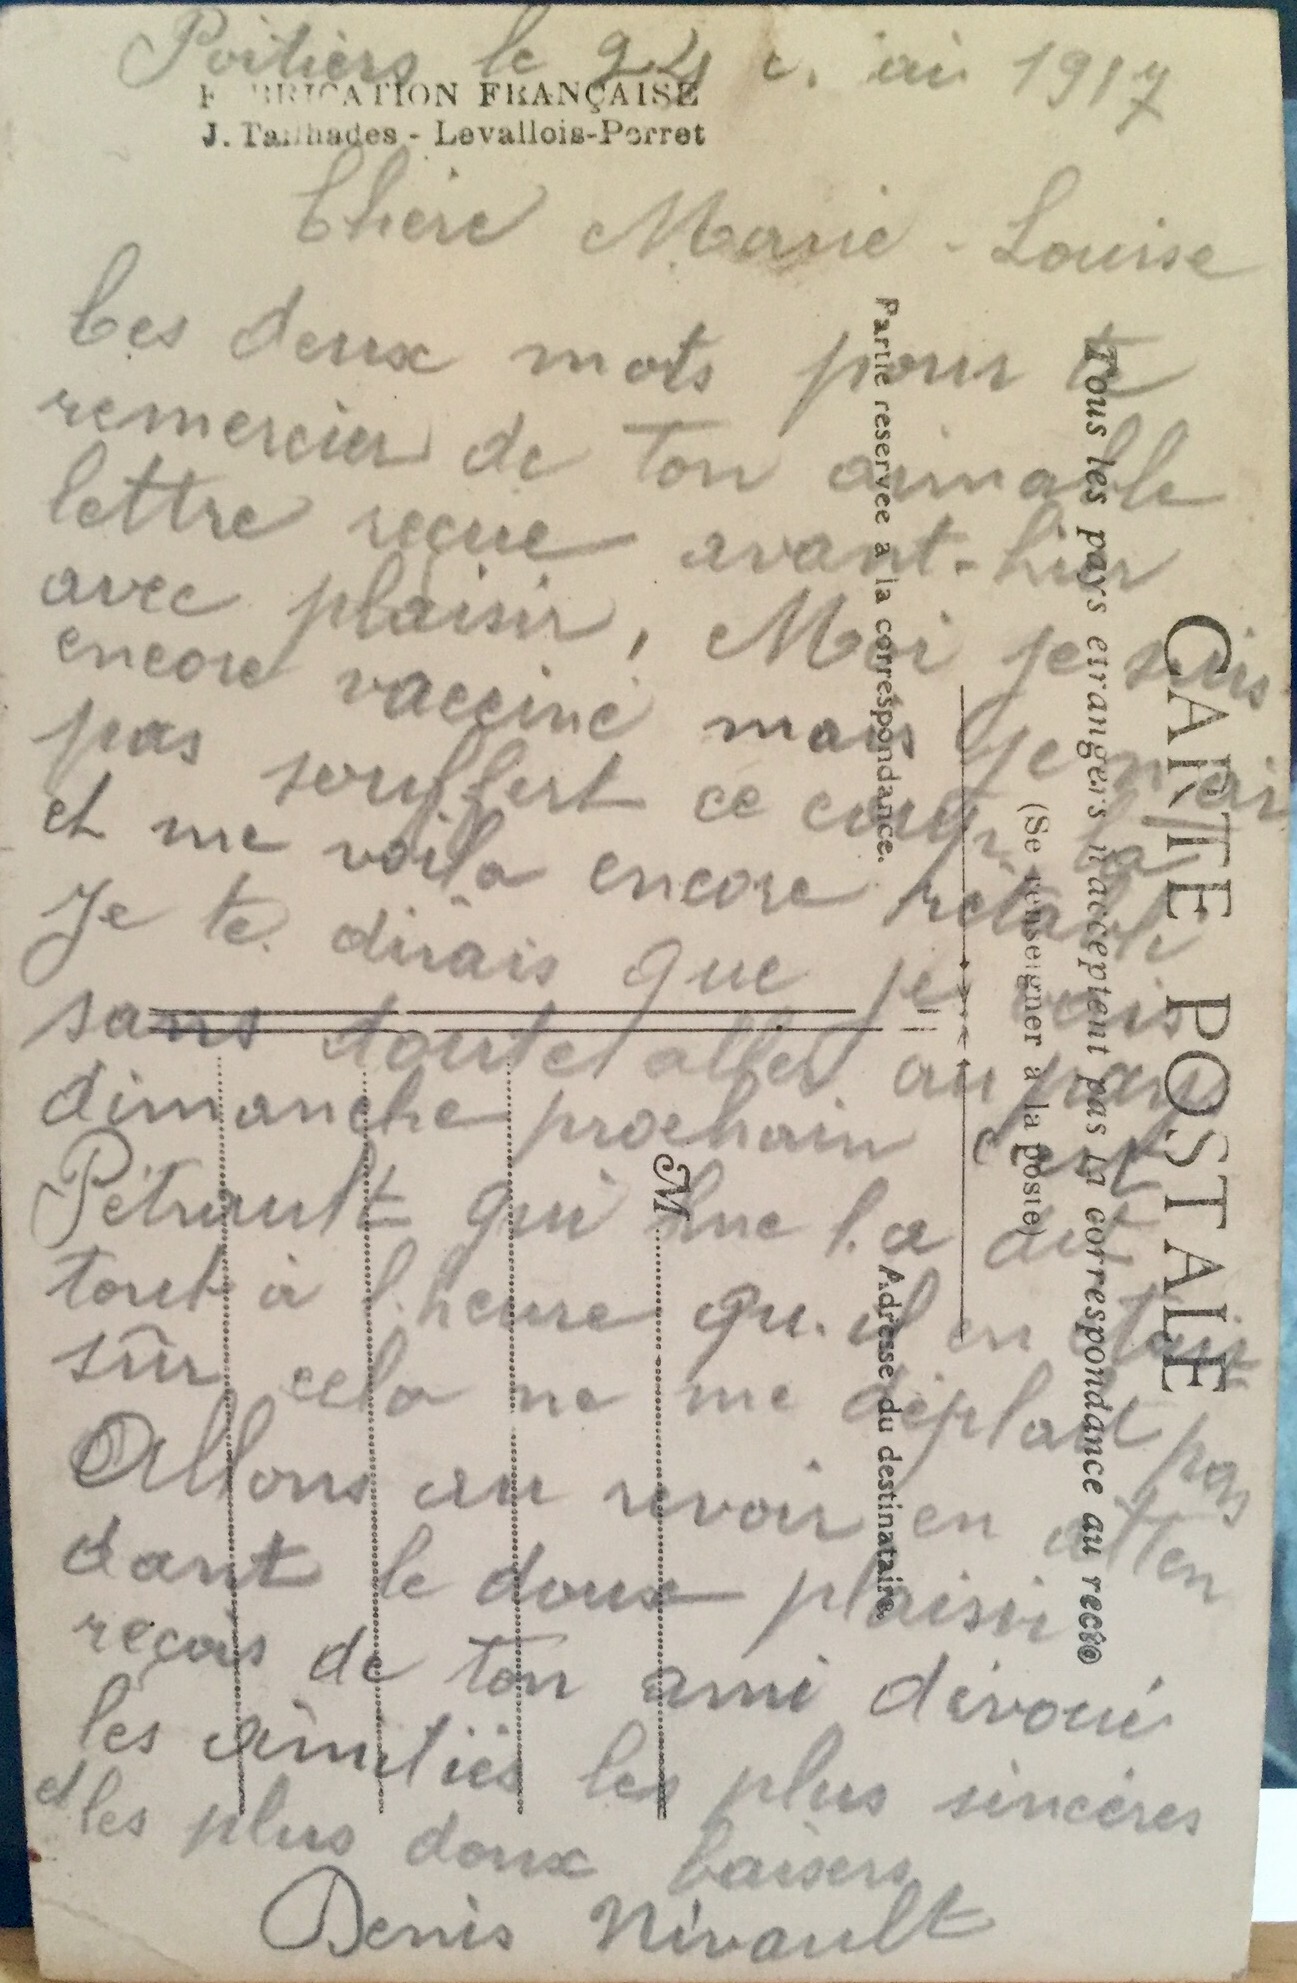 Poitiers le 24 mai 1917
FABRICATION FRANÇAISE
J. Tailhades - Levallois-Perret
Chère Marie-Louise
Ces deux mots pour te
remercier de ton aimable
lettre reçue avant-hier
avec plaisir, Moi je suis
encore vacciné mais je n'ai
pas souffert ce coup là
et me voila encore rétabli
Je te dirais que je vais
sans doute aller au pays
dimanche prochain c'est
Pétrault qui me l'a dit
tout à l'heure qu'il en était
sûr cela ne me déplait pas
Allons au revoir en atten
dant le doux plaisir
reçois de ton ami dévoué
les amitiés les plus sincères
et les plus doux baisers
Denis Nivault
CARTE POSTALE
Tous les pays etrangers n'acceptent pas la correspondance au recto
(Se renseigner a la poste)
Partie reservee a la correspondance.
Adresse du destinataire
M